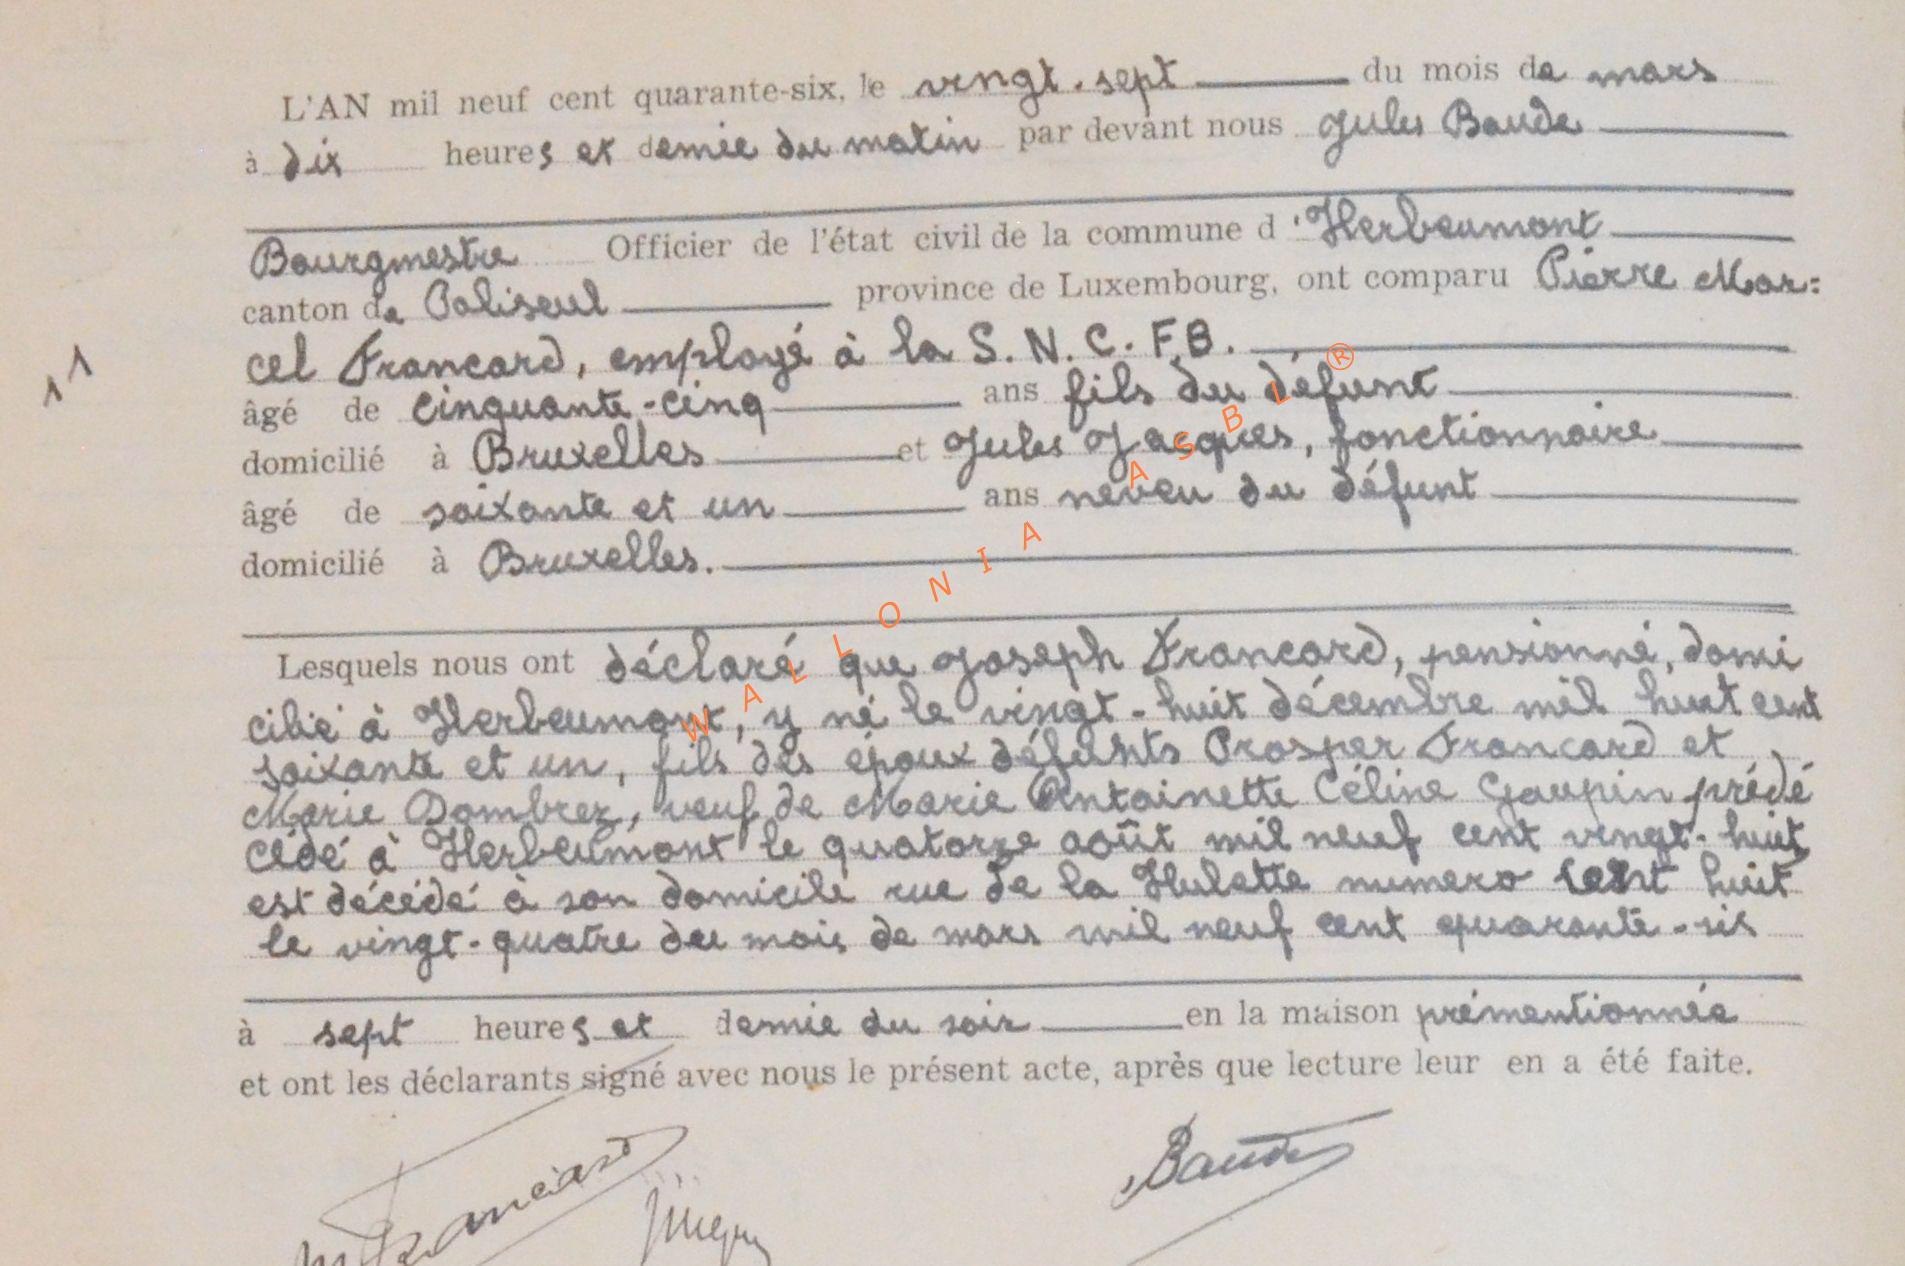 L'AN mil neuf cent quarante-six, le vingt-sept du mois de mars
à dix heures et demie du matin par devant nous Jules Baude
Bourgmestre Officier de l'état civil de la commune d'Herbeumont
canton de Paliseul province de Luxembourg, ont comparu Pierre Mar=
cel Francard, employé à la S.N.C.F.B.
11
âgé de cinquante-cinq ans fils du défunt
domicilié à Bruxelles et Jules Jacques, fonctionnaire
âgé de soixante et un ans neveu du défunt
domicilié à Bruxelles.
Lesquels nous ont déclaré que Joseph Francard, pensionné, domi
cilié à Herbeumont, y né le vingt-huit décembre mil huit cent
soixante et un, fils des époux défunts Prosper Francard et
Marie Dombrez, veuf de Marie Antoinette Céline Gaupin prédé
cédé à Herbeumont le quatorze août mil neuf cent vingt-huit
est décédé à son domicile rue de la Hulette numero cent huit
le vingt-quatre du mois de mars mil neuf cent quarante-six
à sept heures et demie du soir en la maison prémentionnée
et ont les déclarants signé avec nous le présent acte, après que lecture leur en a été faite.
M Francard
Baude
WALLONIA ASBL ®